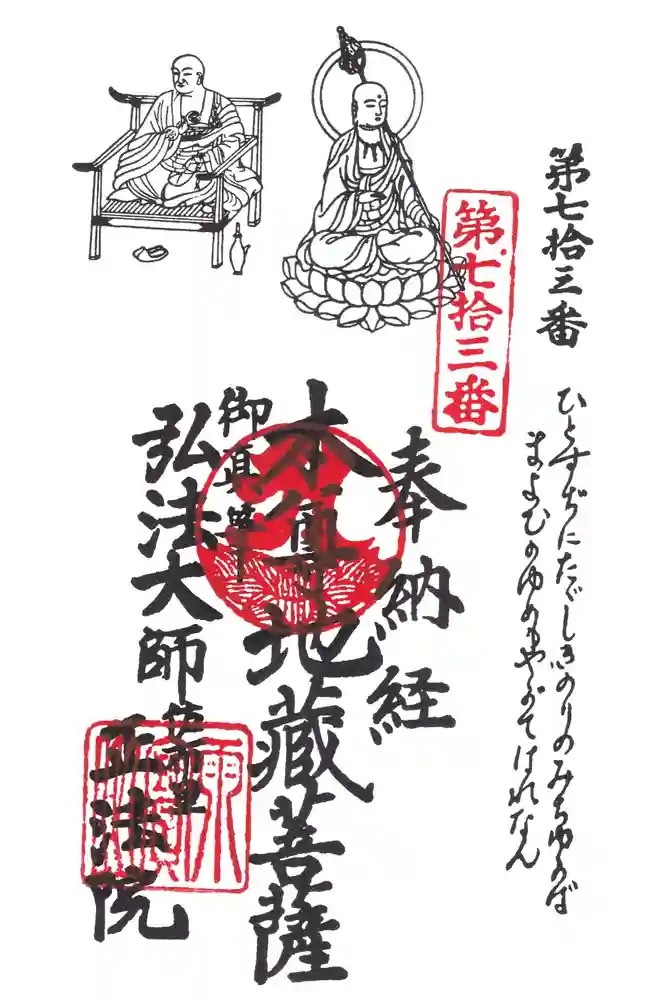 第七拾三番
ひとすぢにたゞしきのりのみちゆかば
まよひのゆめもやがてはれなん
第七拾三番
奉納経
本尊地蔵菩薩
御真筆
弘法大師
正法院